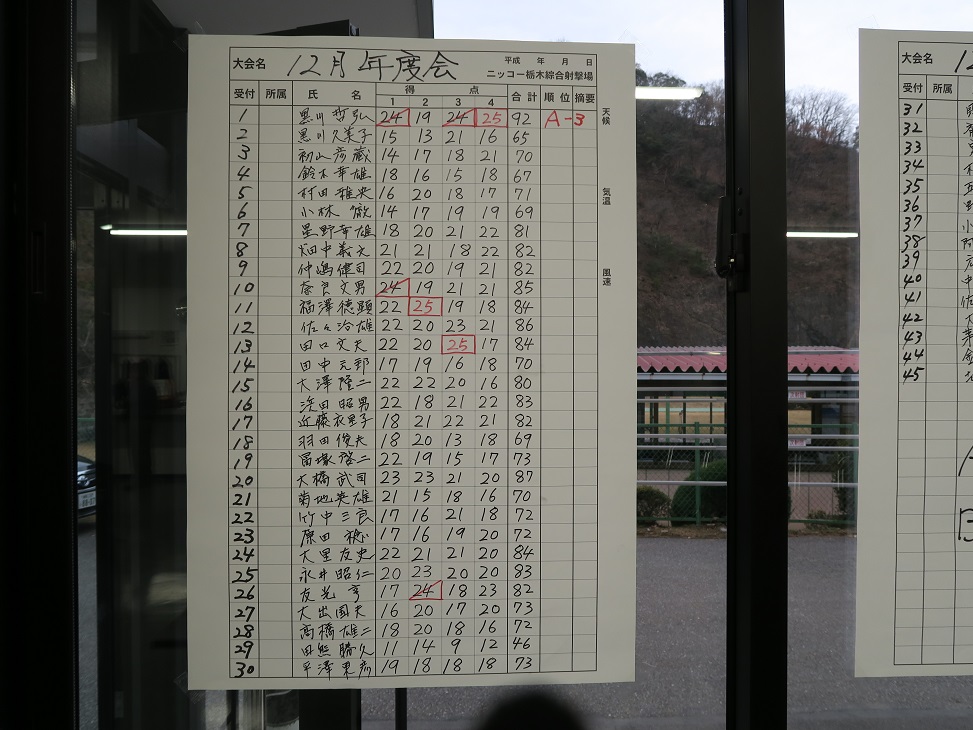 大会名 12月年度会 平成 年 月 日
ニッコー栃木綜合射撃場
受付 所属 氏 名 得 点 合計 順位 摘要
1 2 3 4
1 黒川哲弘 24 19 24 25 92 A-3
2 黒川久美子 15 13 21 16 65
3 初山彦蔵 14 17 18 21 70
4 鈴木幸雄 18 16 15 18 67
5 村田雅央 16 20 18 17 71
6 小林徹 14 17 19 19 69
7 星野幸雄 18 20 21 22 81
8 畑中義文 21 21 18 22 82
9 仲嶋健司 22 20 19 21 82
10 奈良文男 24 19 21 21 85
11 福澤徳顕 22 25 19 18 84
12 佐々治雄 22 20 23 21 86
13 田口文夫 22 20 25 17 84
14 田中元邦 17 19 16 18 70
15 大澤隆二 22 22 20 16 80
16 浜田昭男 22 18 21 22 83
17 近藤衣里子 18 21 22 21 82
18 羽田俊夫 18 20 13 18 69
19 冨塚啓二 22 19 15 17 73
20 大橋武司 23 23 21 20 87
21 菊地英雄 21 15 18 16 70
22 竹中三良 17 16 21 18 72
23 原田 17 16 19 20 72
24 大里友史 22 21 21 20 84
25 永井昭仁 20 23 20 20 83
26 友光亨 17 24 18 23 82
27 大出国夫 16 20 17 20 73
28 高橋雄二 18 20 18 16 72
29 田熊勝久 11 14 9 12 46
30 平澤東彦 19 18 18 18 73
天候
気温
風速
大会名 12
受付 所属
31
32
33
34
35
36
37
38
39
40
41
42
43
44
45